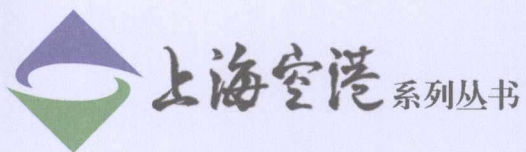 上海空港系列丛书